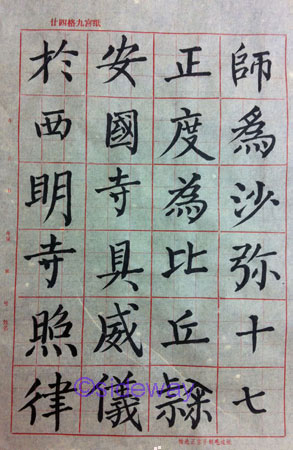 廿四格九宮
師爲沙弥十七
正度為比丘隸
安國寺具威儀
於西明寺照律
©sideway